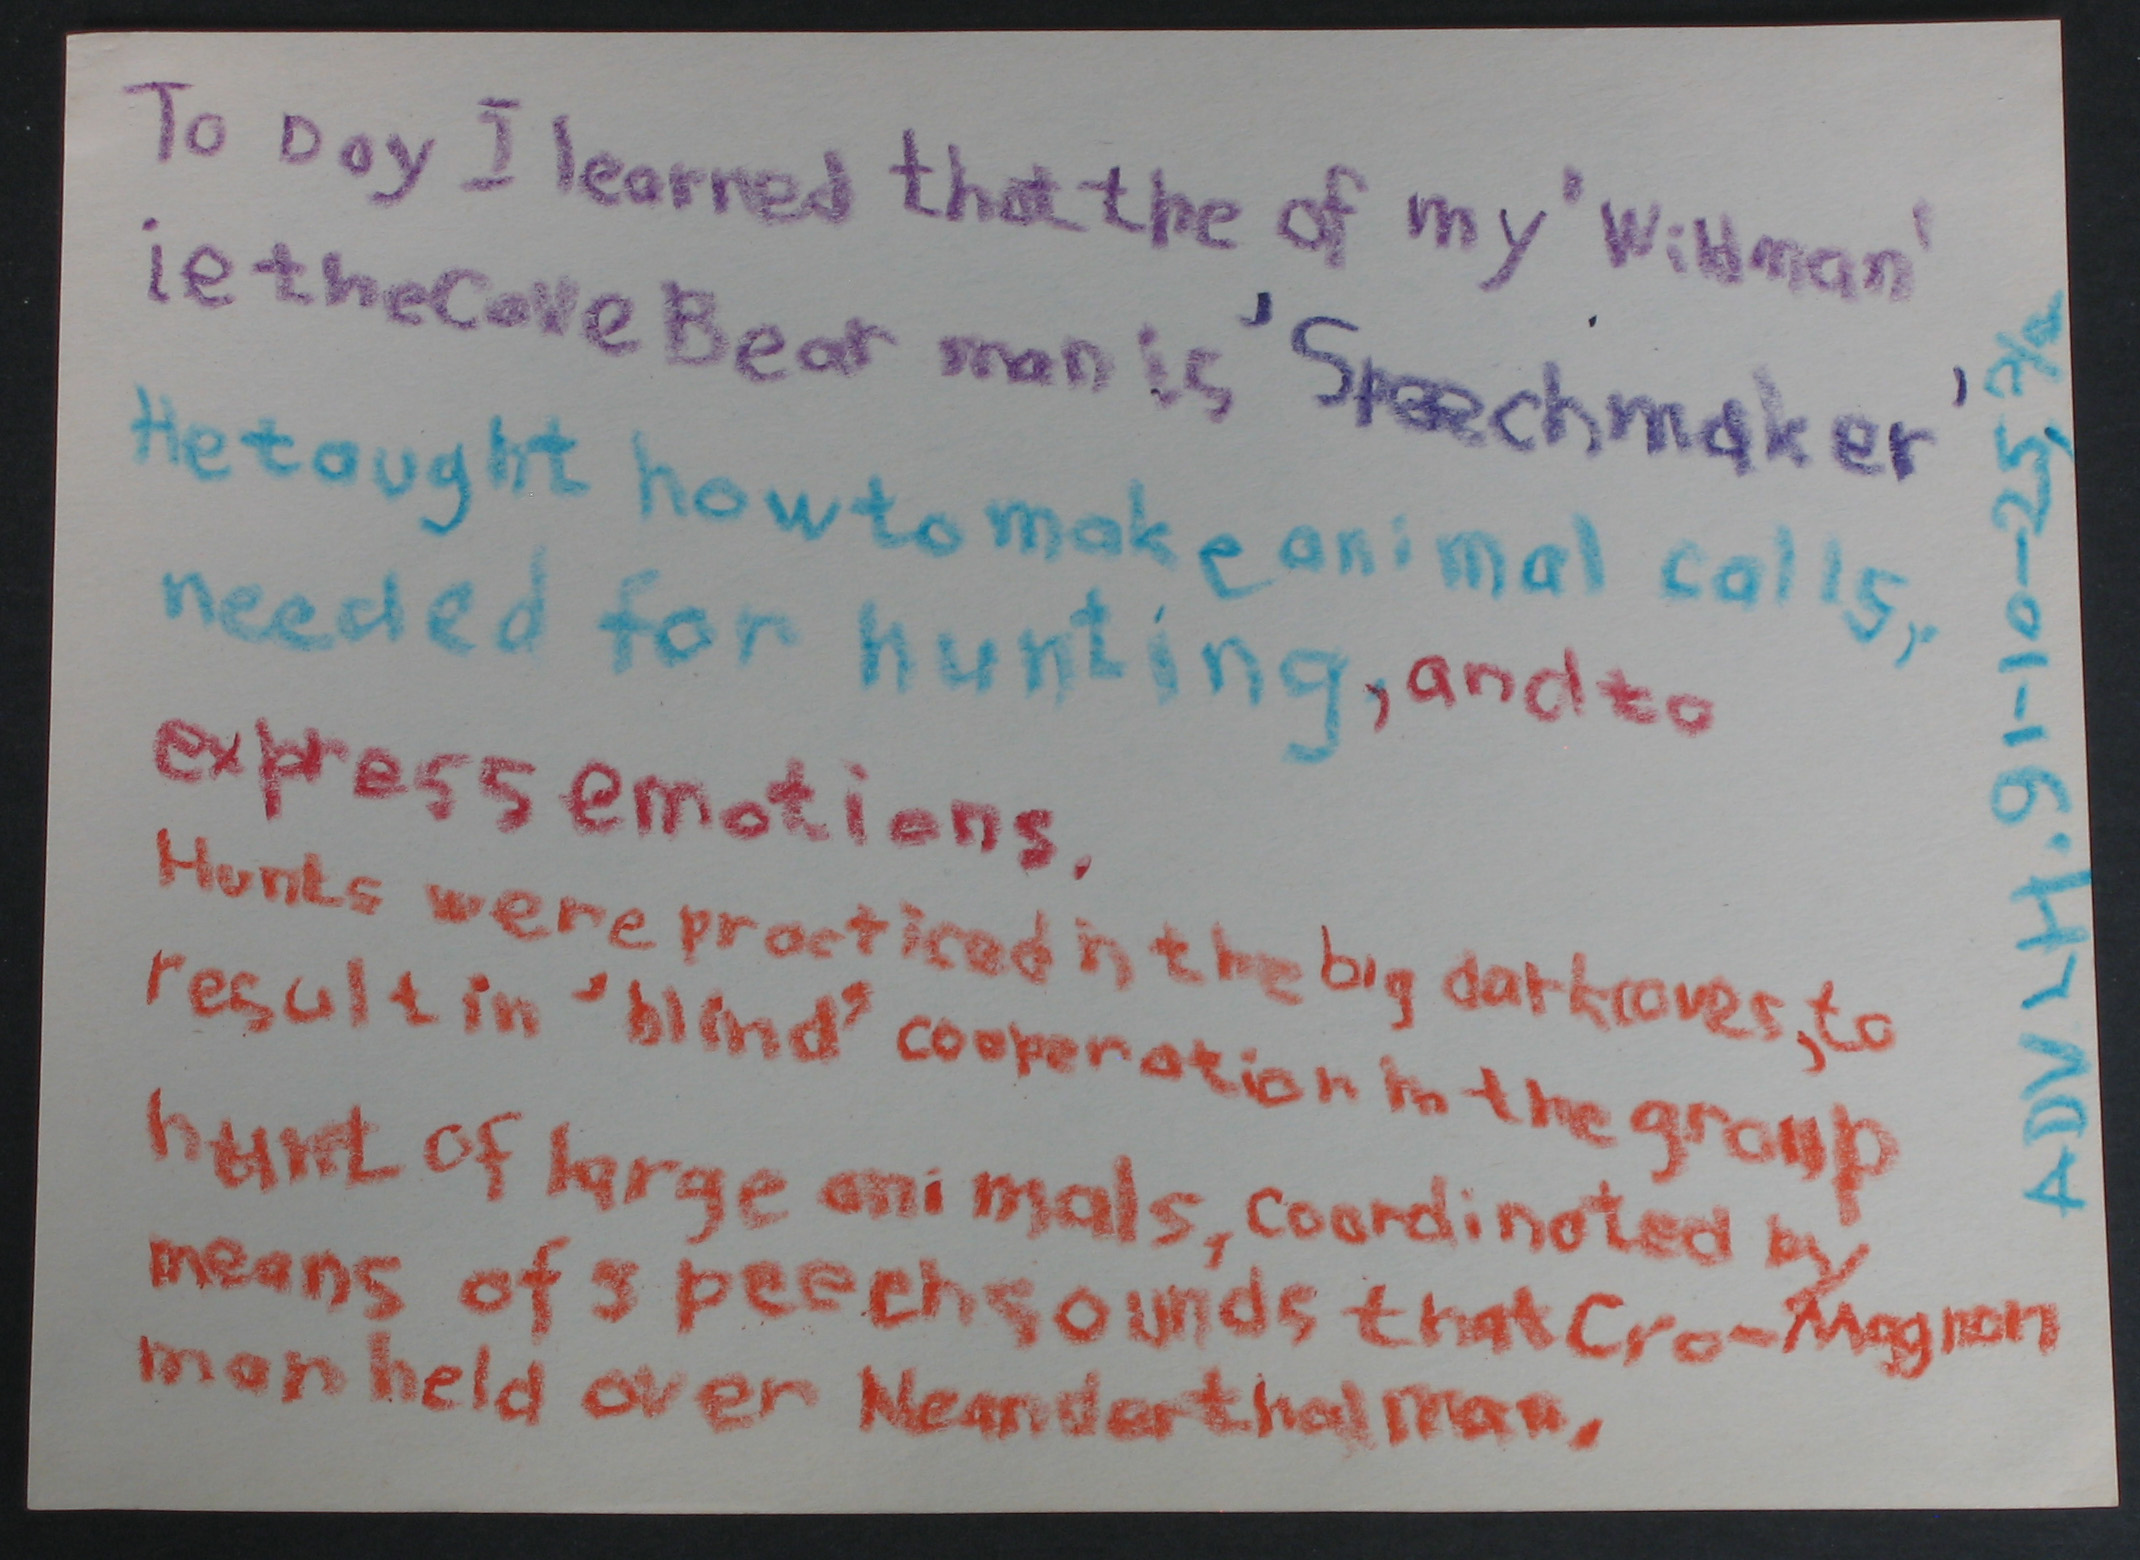 To Day I learned that the of my 'Wildman'
ie the Cave Bear man is 'Speechmaker'
He taught how to make animal calls,
needed for hunting, and to
express emotions.
Hunts were practiced in the big dark caves, to
result in 'blind' cooperation in the group
hunt of large animals, coordinated by
means of speech sounds that Cro-Magnon
man held over Neanderthal man.
ADVLH. 91-10-25,